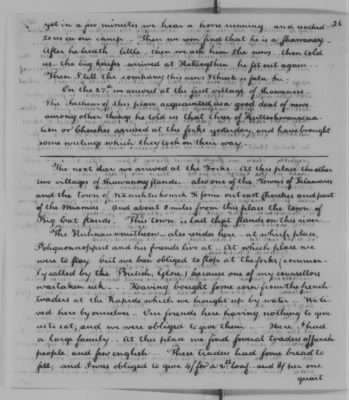 26
yet in a few minutes we hear a horse running and reached
to us in our camp. Then we soon find that he is a Shawanoey.
After he breath little then we ask him the news, then told
us the big knifes arrived at he set out again
Then I tell the company this news I think is false &c.
On the 27th we arrived at the first village of Shawanese
The Indians of this place acquainted us a good deal of news
among other things he told us that chiefs of
or Cherekes arrived at the forks yesterday, and have brought
some writing which they took on their way.
The next day we arrived at the Forks. At this place the other
two village of Shawany stands. also one of the Towns of Delawares
and the Town of & some cast Cherekes and part
of the Miamies. And about 8 miles from this place the town of
Big Cat stands. This town is last that stands on this river
The also resides here at which place,
Pohquonnoppeet and his friends live at. At which place we
were to stay but we been obliged to stop at the forks, common-
ly called by the British, Glaize, because one of my counsellors
was taken sick. Having bought some corn from the french
traders at the Rapids which we brought up by water. We li-
ved here by ourselves. Our friends here having nothing to give
us to eat, and we were obliged to give them. Here I had
a large family. At this place we find several traders of french
people and few english. These traders had some bread to
sell, and I was obliged to give 4/ for a 2lb loaf and 8/ per one
quart